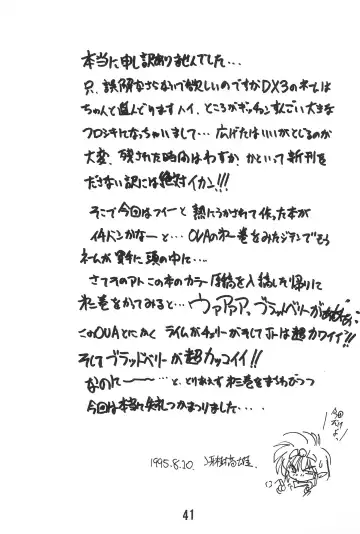 本当に申し訳ありませんでした・・・
只、誤解なさらないで欲しいのですがDX3のネームは
ちゃんと進んどりますハイ、ところがギッチョンすんごい大きな
フロシキになっちゃいまして・・・広げたはいいがとじるのが
大変、残された時間はわずか、かといって新刊を
ださない訳には絶対イカン!!!
そこで今回はフイーと熱にうかされて作った本が
イイんバンかなーと・・・OVAの第一巻をみたジテンでもう
ネームが勝手に頭の中に・・・
さてそのアトこの本のカラー原稿を入稿した帰りに
第二巻をかてみると・・・ウァアァア、ブラッドベリーがああぁ
このOVAとにかくライムがチェリーがそして
超カワイイ!!
そしてブラッドベリーが超カッコイイ!!
なのにーーー・・・と、とりあえず第三巻をまちわびつつ
今回は本当に失礼つかまつりました・・・・
1995.8.10.
41